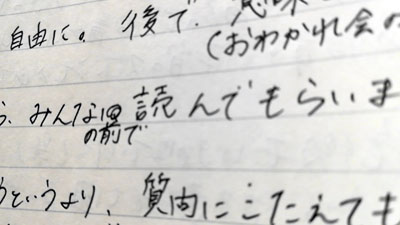 自由に。後で、
(おわかれ会の
みんな
の前で
読んでもらいま
というより、質問にこたえても